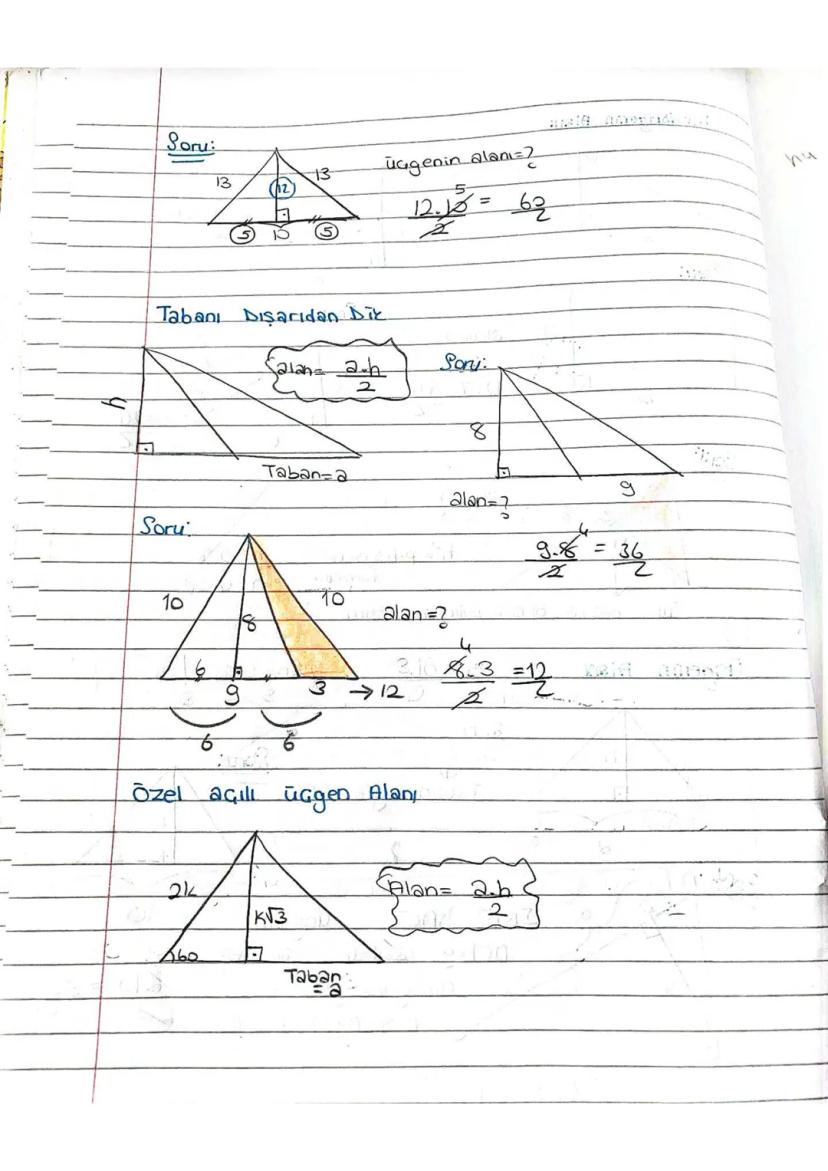 Soru:
13 12 13
5 10 5
üçgenin alanı=?
12.10 5 = 60
2
Tabanı Dışarıdan Dik
h
alan= a.h
2
Taban=a
Soru:
8
9
alan=?
9.8 4 = 36
2
Soru:
10 8 10
6 9 3 → 12
6 6
alan=?
4
8.3 = 12
2
Özel açılı üçgen Alanı
2k
k√3
60
Taban
=a
Alan= a.h
2